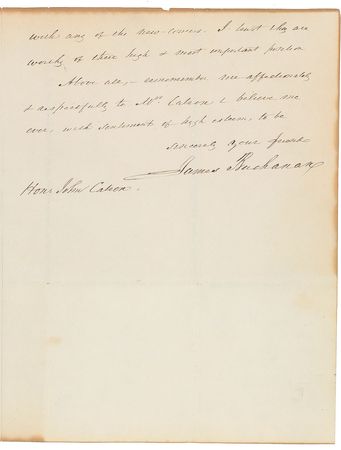 with any of the new-comers. I trust they are
worthy of their high & most important position
Above all, – remember me affectionately
& respectfully to Mrs Catron & believe me
ever, with sentiments of high esteem, to be
sincerely your friend
James Buchanan
Hon: John Catron.